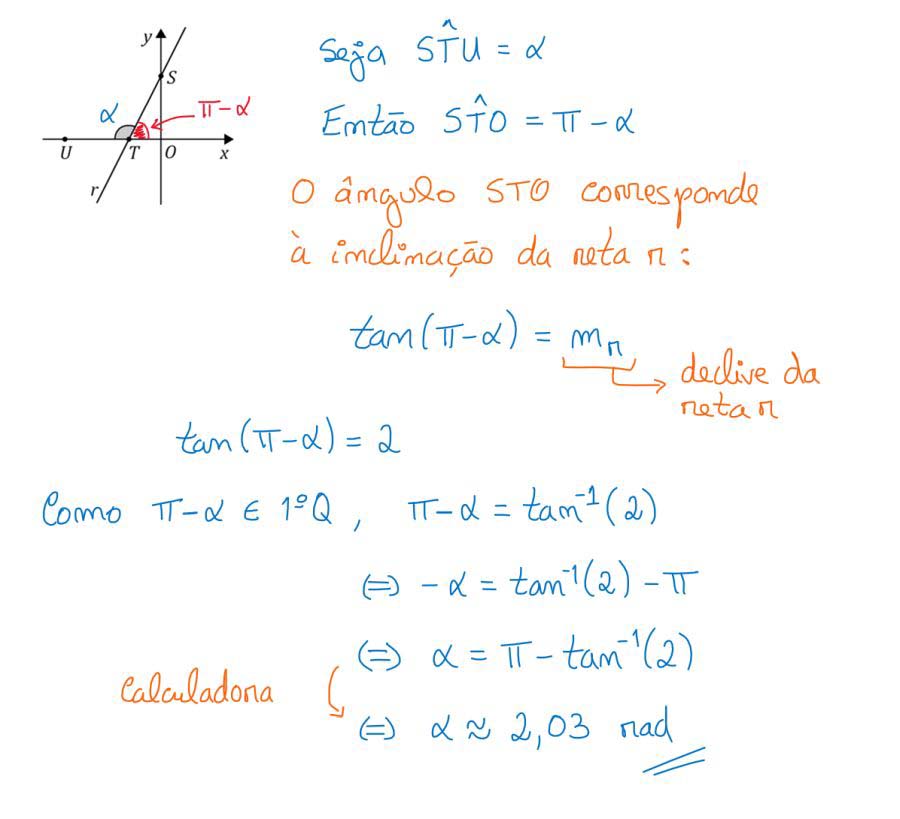 y
S
α
π-α
U
T
O
x
r
Seja ST̂U = α
Então ST̂O = π - α
O ângulo STO corresponde
à inclinação da reta r :
tan(π-α) = mᵣ
declive da
reta r
tan(π-α) = 2
Como π-α ∈ 1ºQ , π-α = tan⁻¹(2)
(=) -α = tan⁻¹(2) - π
(=) α = π - tan⁻¹(2)
Calculadora
(=) α ≈ 2,03 rad